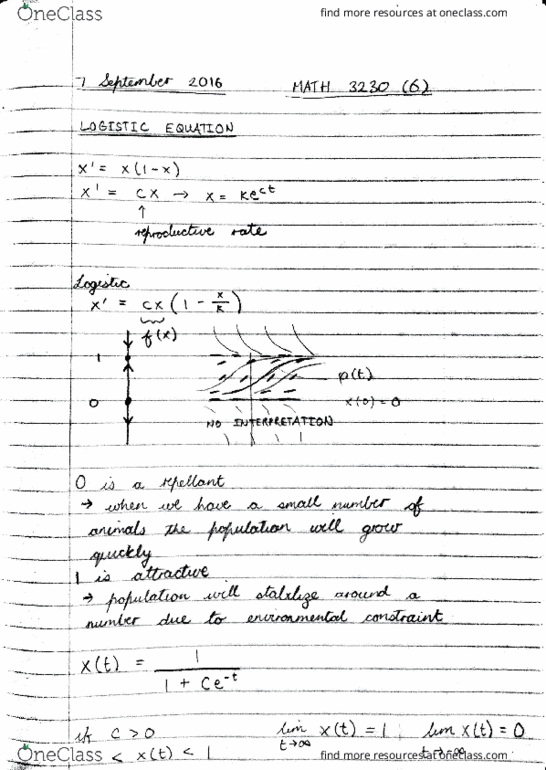 OneClass
find more resources at oneclass.com
7 September 2016 MATH 3230 (6)
LOGISTIC EQUATION
x' = x(1-x)
x' = cx → x = Ke^ct
↑
reproductive rate
Logistic
x' = cx (1 - x/k)
f(x)
1
p(t)
0 x(0) = 0
NO INTERPRETATION
0 is a repellant
→ when we have a small number of
animals the population will grow
quickly
1 is attractive
→ population will stabilize around a
number due to environmental constraint
x(t) = 1 / 1 + Ce^-t
if C > 0 lim t→∞ x(t) = 1 lim t→-∞ x(t) = 0
< x(t) < 1
OneClass
find more resources at oneclass.com